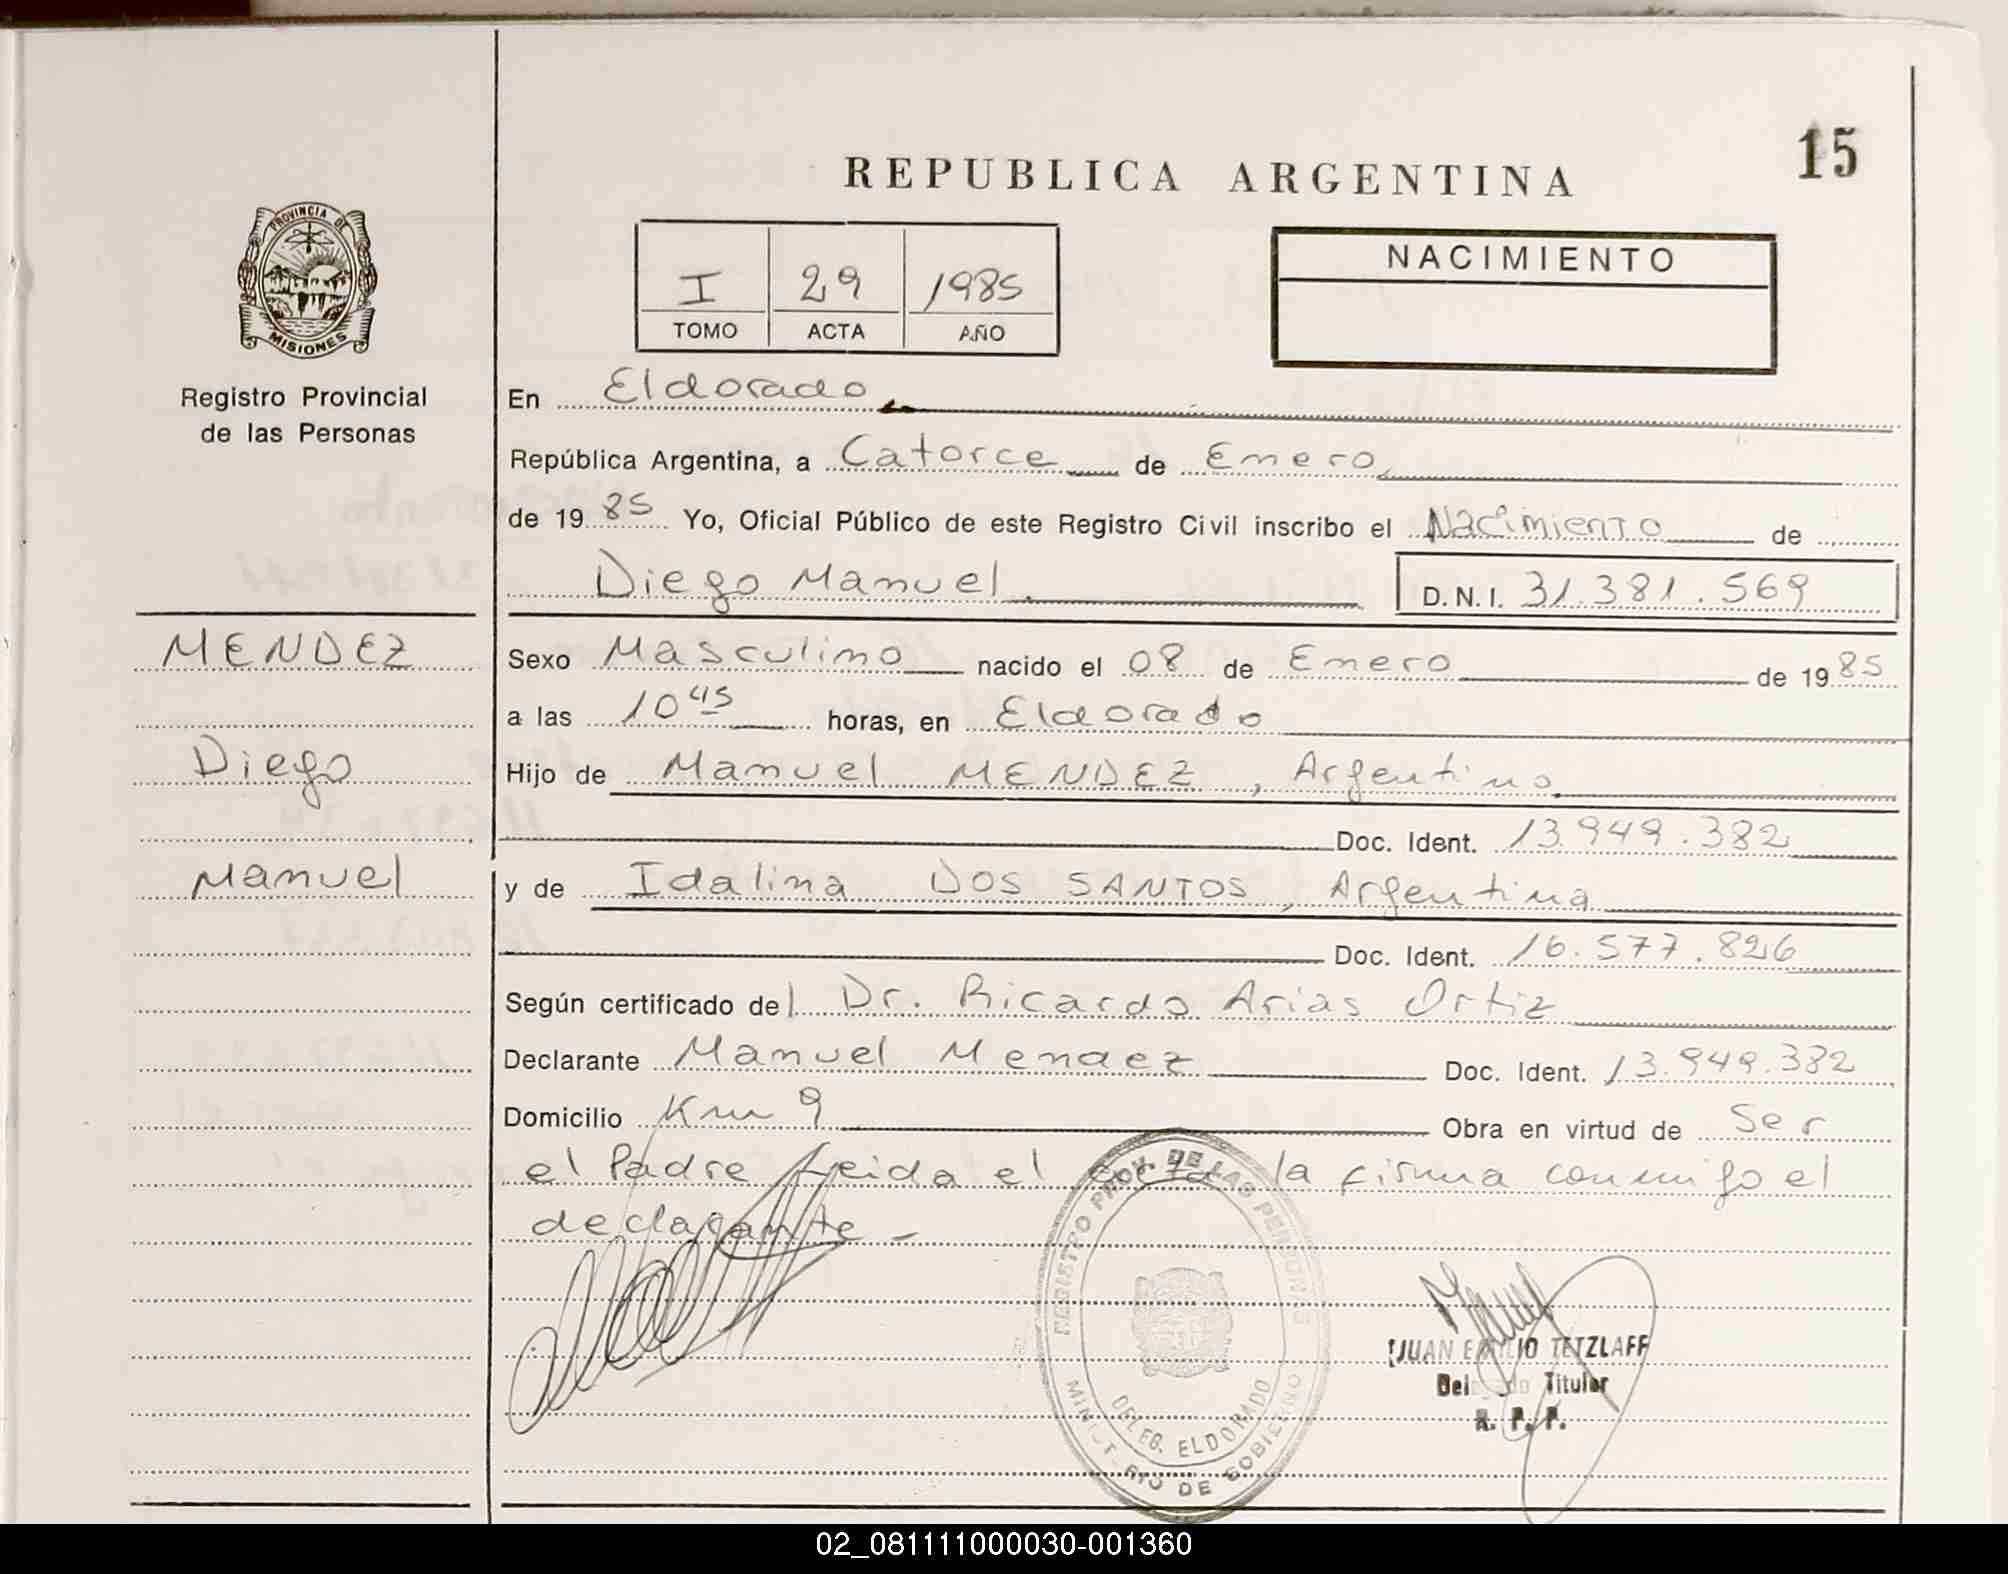 15
REPUBLICA ARGENTINA
PROVINCIA DE
MISIONES
Registro Provincial
de las Personas
I 29 1985
TOMO ACTA AÑO
NACIMIENTO
En Eldorado
República Argentina, a Catorce de Enero
de 1985 Yo, Oficial Público de este Registro Civil inscribo el Nacimiento de
Diego Manuel D.N.I. 31.381.569
MENDEZ
Diego
Manuel
Sexo Masculino nacido el 08 de Enero de 1985
a las 10 45 horas, en Eldorado
Hijo de Manuel MENDEZ, Argentino
Doc. Ident. 13.949.382
y de Idalina DOS SANTOS, Argentina
Doc. Ident. 16.577.826
Según certificado del Dr. Ricardo Arias Ortiz
Declarante Manuel Mendez Doc. Ident. 13.949.382
Domicilio Km 9 Obra en virtud de Ser
el Padre Leida el acta la firma conmigo el
declarante -
REGISTRO PROV. DE LAS PERSONAS
DELEG. ELDORADO
MINISTERIO DE GOBIERNO
JUAN EMILIO TETZLAFF
Delegado Titular
R. P. P.
02_081111000030-001360